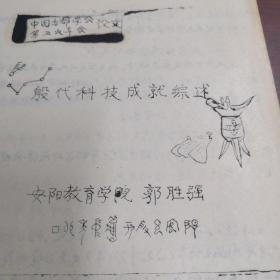 中国古都学会
第五次年会
论文
殷代科技成就综述
安阳教育学院 郭胜强